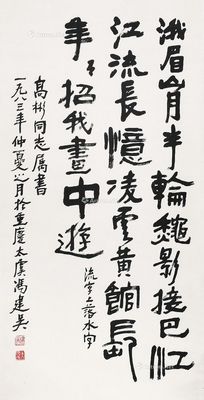 峨眉山月半輪龝影接巴江
江流長憶凌雲黃館
年〻招我畫中遊
流字上落水字
高彬同志屬書
一九八三年仲夏之月於重慶太虞馮建吳